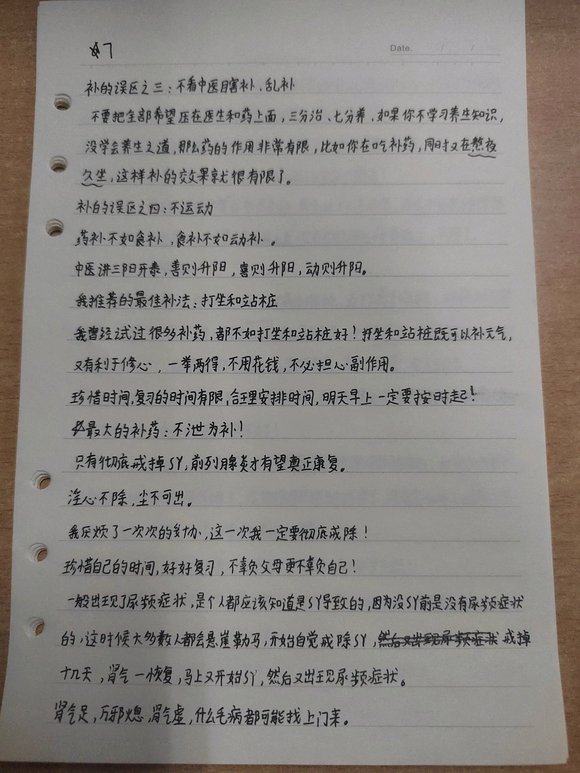 47
Date. / /
补的误区之三：不看中医瞎补、乱补
不要把全部希望压在医生和药上面，三分治、七分养，如果你不学习养生知识，
没学会养生之道，那么药的作用非常有限，比如你在吃补药，同时又在熬夜
久坐，这样补的效果就很有限了。
补的误区之四：不运动
药补不如食补，食补不如动补。
中医讲三阳开泰，善则升阳，喜则升阳，动则升阳。
我推荐的最佳补法：打坐和站桩
我曾经试过很多补药，都不如打坐和站桩好！打坐和站桩既可以补元气，
又有利于修心，一举两得，不用花钱，不必担心副作用。
珍惜时间，复习的时间有限，合理安排时间，明天早上一定要按时起！
最大的补药：不泄为补！
只有彻底戒掉SY，前列腺炎才有望真正康复。
淫心不除，尘不可出。
我厌烦了一次次的纠协，这一次我一定要彻底戒除！
珍惜自己的时间，好好复习，不辜负父母更不辜负自己！
一般出现了尿频症状，是个人都应该知道是SY导致的，因为没SY前是没有尿频症状
的，这时候大多数人都会悬崖勒马，开始自觉戒除SY，然后又出现尿频症状 戒掉
十几天，肾气一恢复，马上又开始SY，然后又出现尿频症状。
肾气足，万邪熄，肾气虚，什么毛病都可能找上门来。